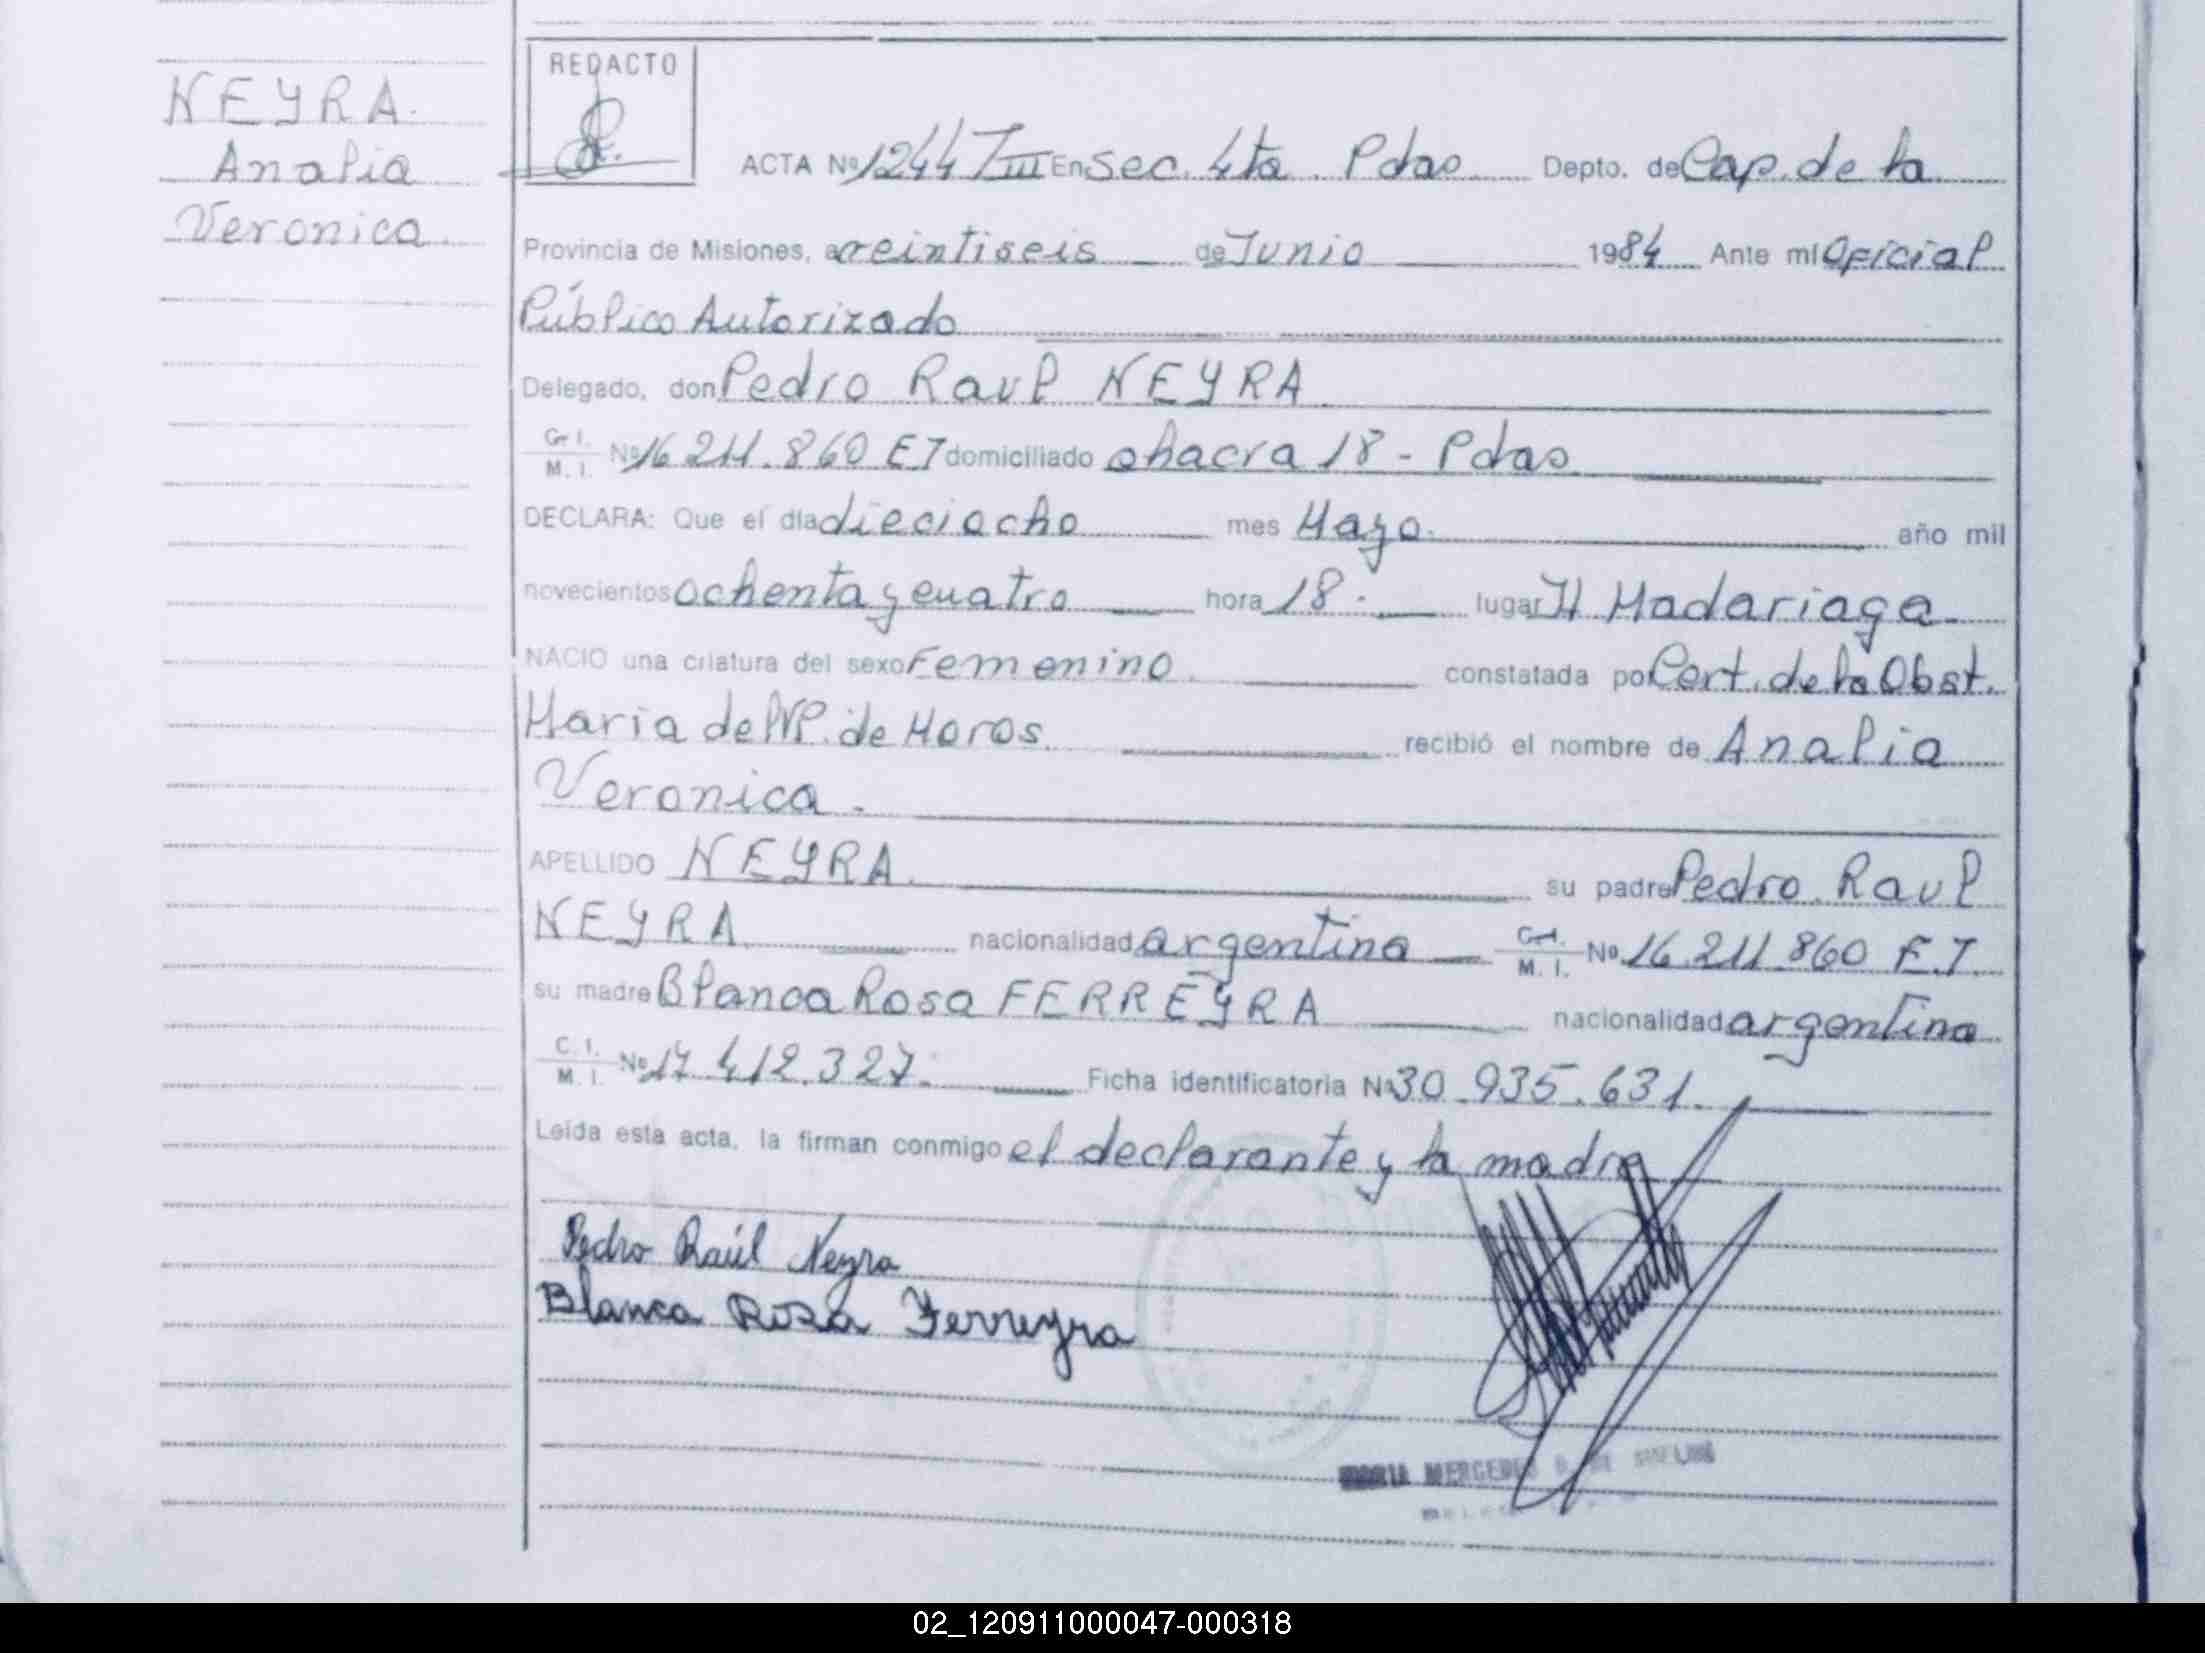 NEYRA.
Analia
Veronica.
REDACTO
ACTA Nº 1244 TIII En Sec. 4ta. Pdas Depto. de Cap. de la
Provincia de Misiones, a veintiseis de Junio 1984 Ante mi Oficial
Público Autorizado
Delegado, don Pedro Raul NEYRA
C. I.
M. I. Nº 16.211.860 EJ domiciliado chacra 18 - Pdas
DECLARA: Que el día dieciocho mes Mayo. año mil
novecientos ochenta y cuatro hora 18. lugar H Madariaga
NACIO una criatura del sexo Femenino constatada por Cert. de la Obst.
Maria de P. de Moros recibió el nombre de Analia
Veronica.
APELLIDO NEYRA su padre Pedro Raul
NEYRA nacionalidad argentina C. I.
M. I. Nº 16.211.860 E.J.
su madre Blanca Rosa FERREYRA nacionalidad argentina
C. I.
M. I. Nº 17.412.327. Ficha identificatoria Nº 30.935.631.
Leída esta acta, la firman conmigo el declarante y la madre
Pedro Raúl Neyra
Blanca Rosa Ferreyra
MARIA MERCEDES
02_120911000047-000318